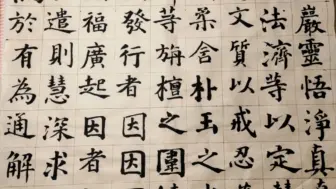 嚴靈悟淨真
法濟等以定
文質以戒忍
含朴玉之
等旃檀之圍
發行者因因
福廣起因者
遣則慧深求
於有為通解